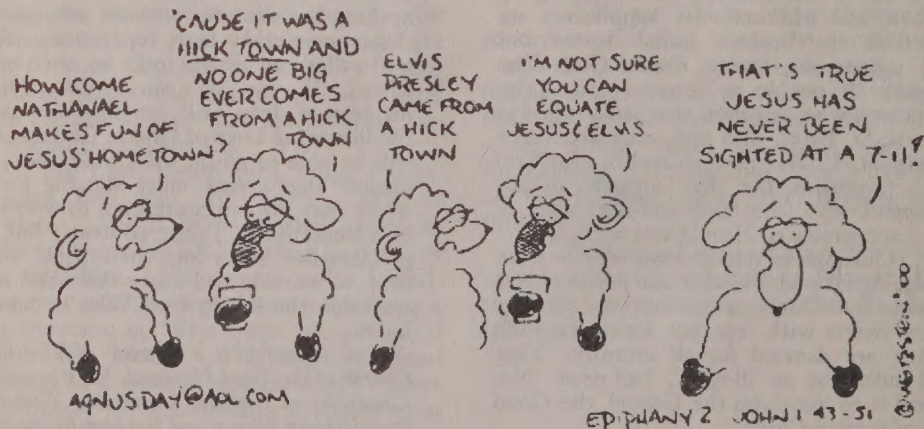 HOW COME
NATHANAEL
MAKES FUN OF
JESUS' HOMETOWN?
'CAUSE IT WAS A
HICK TOWN AND
NO ONE BIG
EVER COMES
FROM A HICK
TOWN
ELVIS
PRESLEY
CAME FROM
A HICK
TOWN
I'M NOT SURE
YOU CAN
EQUATE
JESUS & ELVIS
THAT'S TRUE
JESUS HAS
NEVER BEEN
SIGHTED AT A 7-11!
AGNUSDAY@AOL.COM
EPIPHANY 2 JOHN 1 43-51